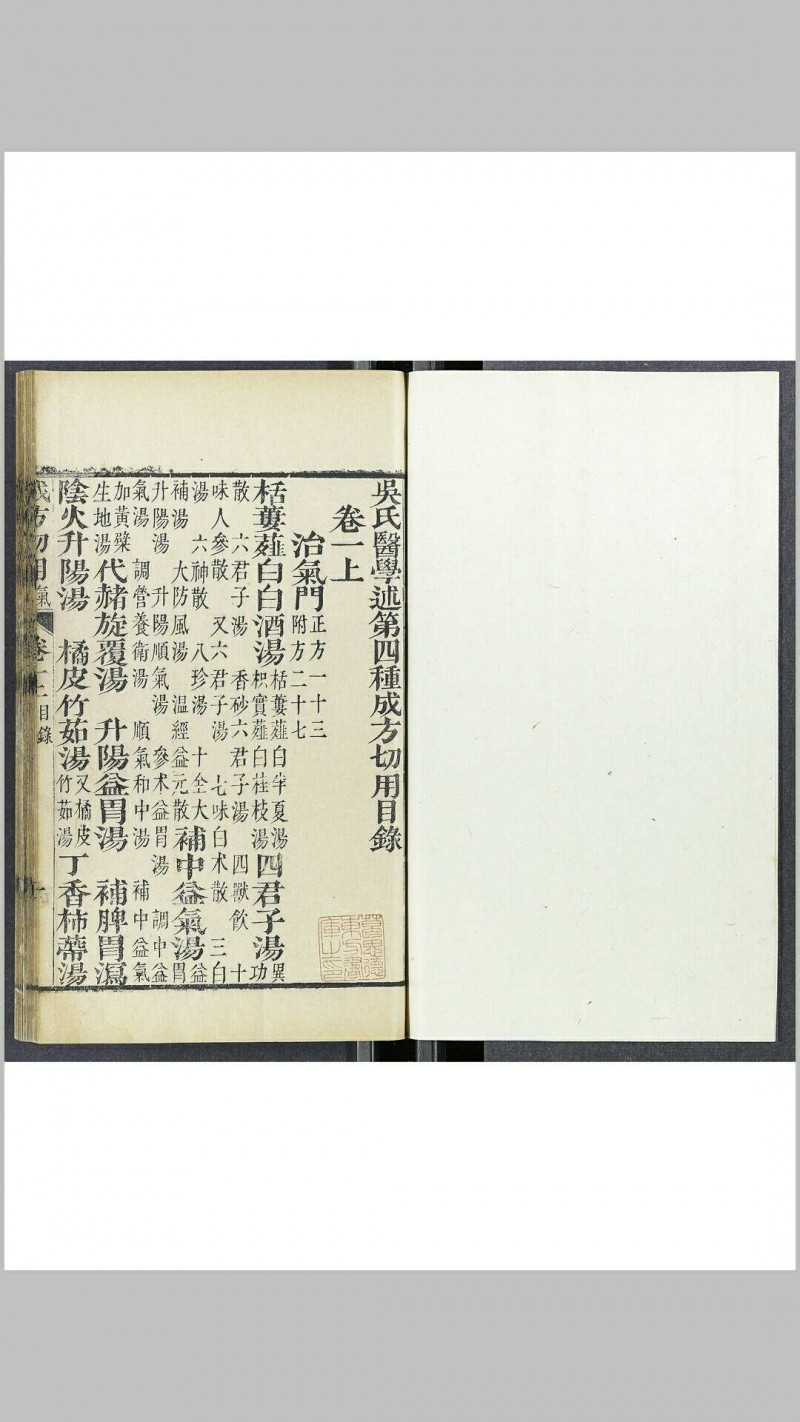 吳氏醫學述第四種成方切用目錄
卷一上
治氣門 正方一十三 附方二十七
栝蔞薤白白酒湯 栝蔞薤白半夏湯 枳實薤白桂枝湯 四君子湯 異功
散 六君子湯 香砂六君子湯 四獸飲 十
味人參散 又六君子湯 七味白术散 三白
湯 六神散 八珍湯 十全大
補湯 大防風湯 温經益元散 補中益氣湯 益胃
升陽湯 升陽順氣湯 參术益胃湯 調中益
氣湯 調營養衛湯 順氣和中湯 補中益氣
加黃檗生地湯 代赭旋覆湯 升陽益胃湯 補脾胃瀉
陰火升陽湯 橘皮竹茹湯 又橘皮竹茹湯 丁香柿蒂湯
成方切用 氣 卷一上目錄 一